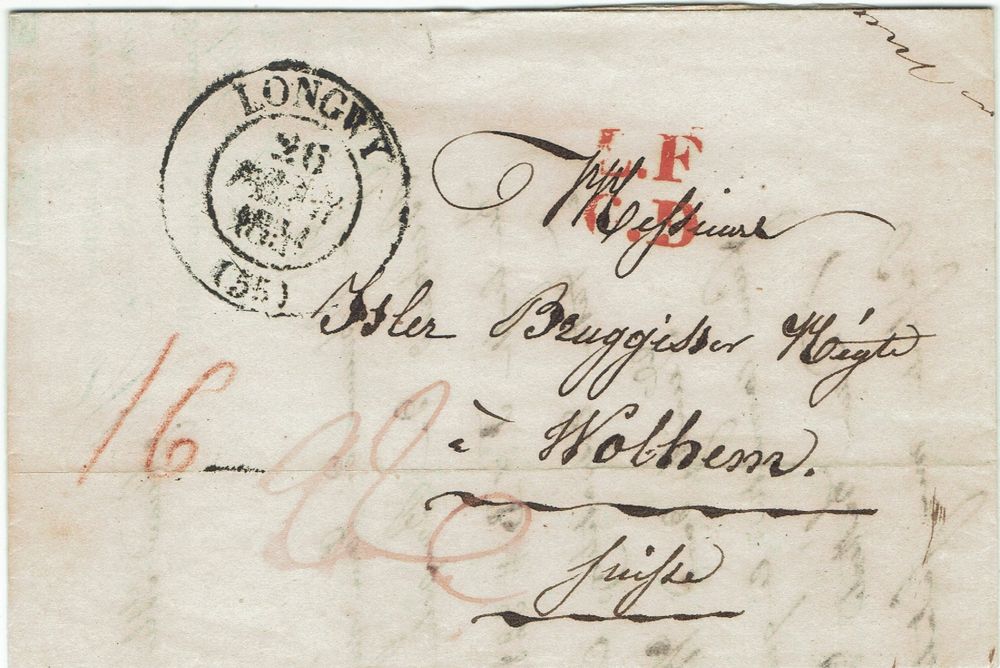 LONGWY
26
(55)
L.F
G.B
Messieurs
Isler Bruggisser Négts
à Wolhem.
Suisse
16